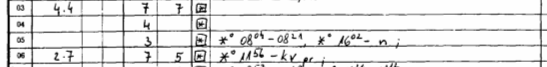 03 4.4 7 7
04 4
05 3 *° 08⁰⁴-0821, *° 16⁰²- n;
06 2.7 7 5 *° 11⁵⁶-kv pr;